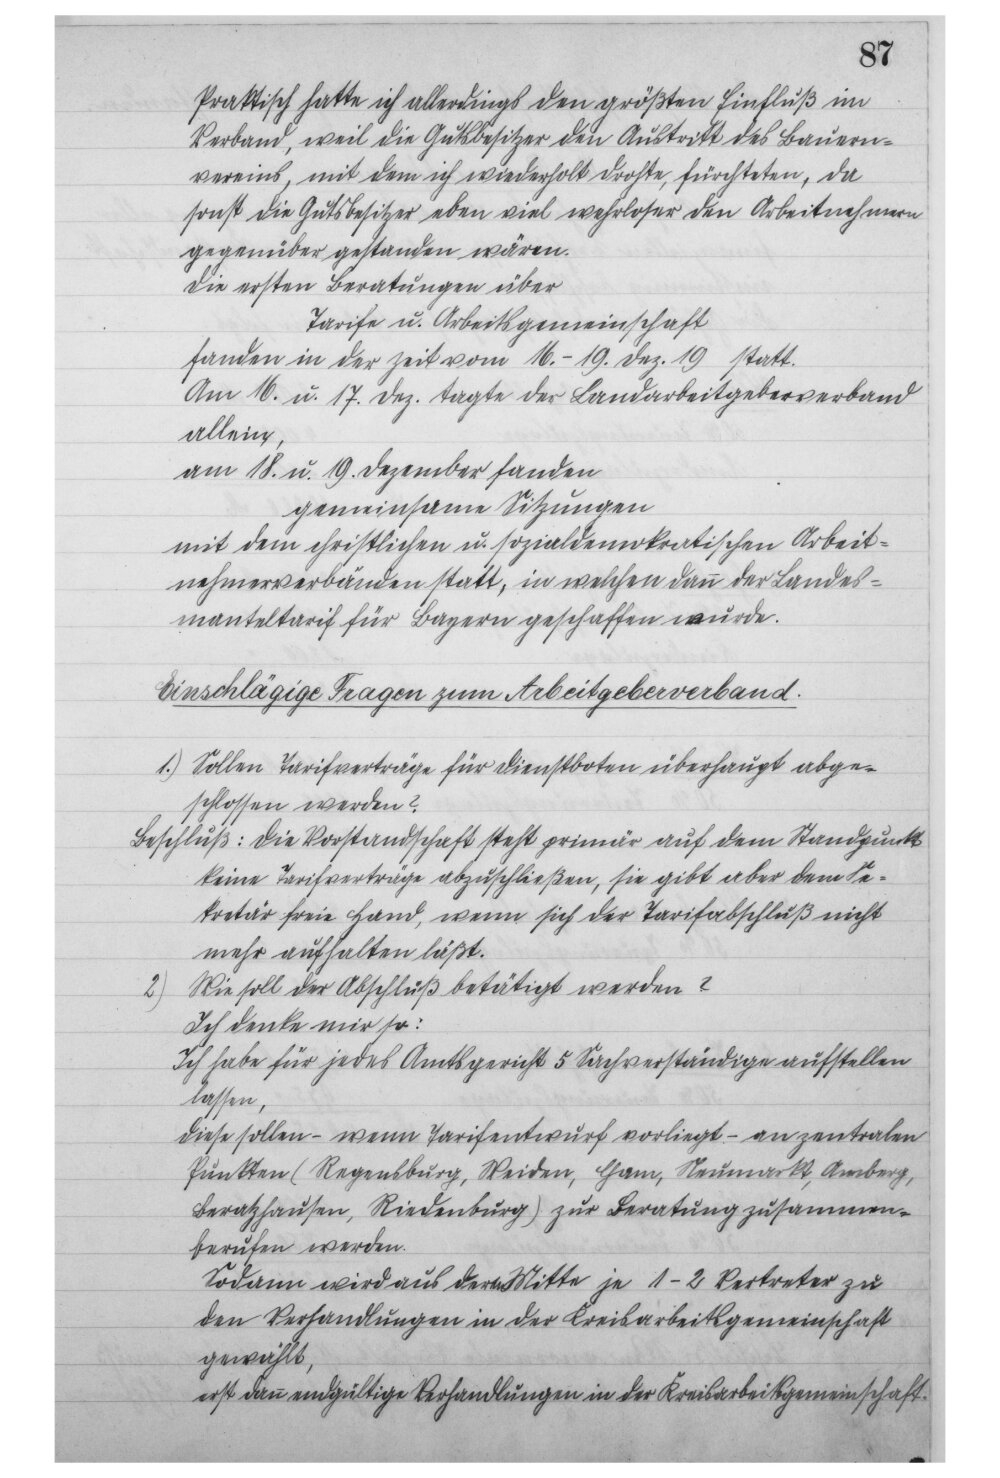 87
Praktisch hatte ich allerdings den größten Einfluß im
Verband, weil die Gutsbesitzer den Austritt des Bauern-
vereins, mit dem ich wiederholt drohte, fürchteten, da
sonst die Gutsbesitzer eben viel wehrloser den Arbeitnehmern
gegenüber gestanden wären.
Die ersten Beratungen über
Tarife u. Arbeitsgemeinschaft
fanden in der Zeit vom 16.-19. Dez. 19 statt.
Am 16. u. 17. Dez. tagte der Landarbeitgeberverband
allein,
am 18. u. 19. Dezember fanden
gemeinsame Sitzungen
mit dem christlichen u. sozialdemokratischen Arbeit-
nehmerverbänden statt, in welchen dan̅ der Landes-
manteltarif für Bayern geschaffen wurde.
Einschlägige Fragen zum Arbeitgeberverband.
1.) Sollen Tarifverträge für Dienstboten überhaupt abge-
schlossen werden?
Beschluß: Die Vorstandschaft steht primär auf dem Standpunkt
keine Tarifverträge abzuschließen, sie gibt aber dem Se-
kretär freie Hand, wenn sich der Tarifabschluß nicht
mehr aufhalten läßt.
2) Wie soll der Abschluß betätigt werden?
Ich denke mir so:
Ich habe für jedes Amtsgericht 5 Sachverständige aufstellen
lassen,
diese sollen - wenn Tarifentwurf vorliegt - an zentralen
Punkten (Regensburg, Weiden, Cham, Neumarkt, Amberg,
Beratzhausen, Riedenburg) zur Beratung zusammen-
berufen werden.
Sodann wird aus deren Mitte je 1-2 Vertreter zu
den Verhandlungen in der Kreisarbeitsgemeinschaft
gewählt,
erst dan̅ endgültige Verhandlungen in der Kreisarbeitsgemeinschaft.